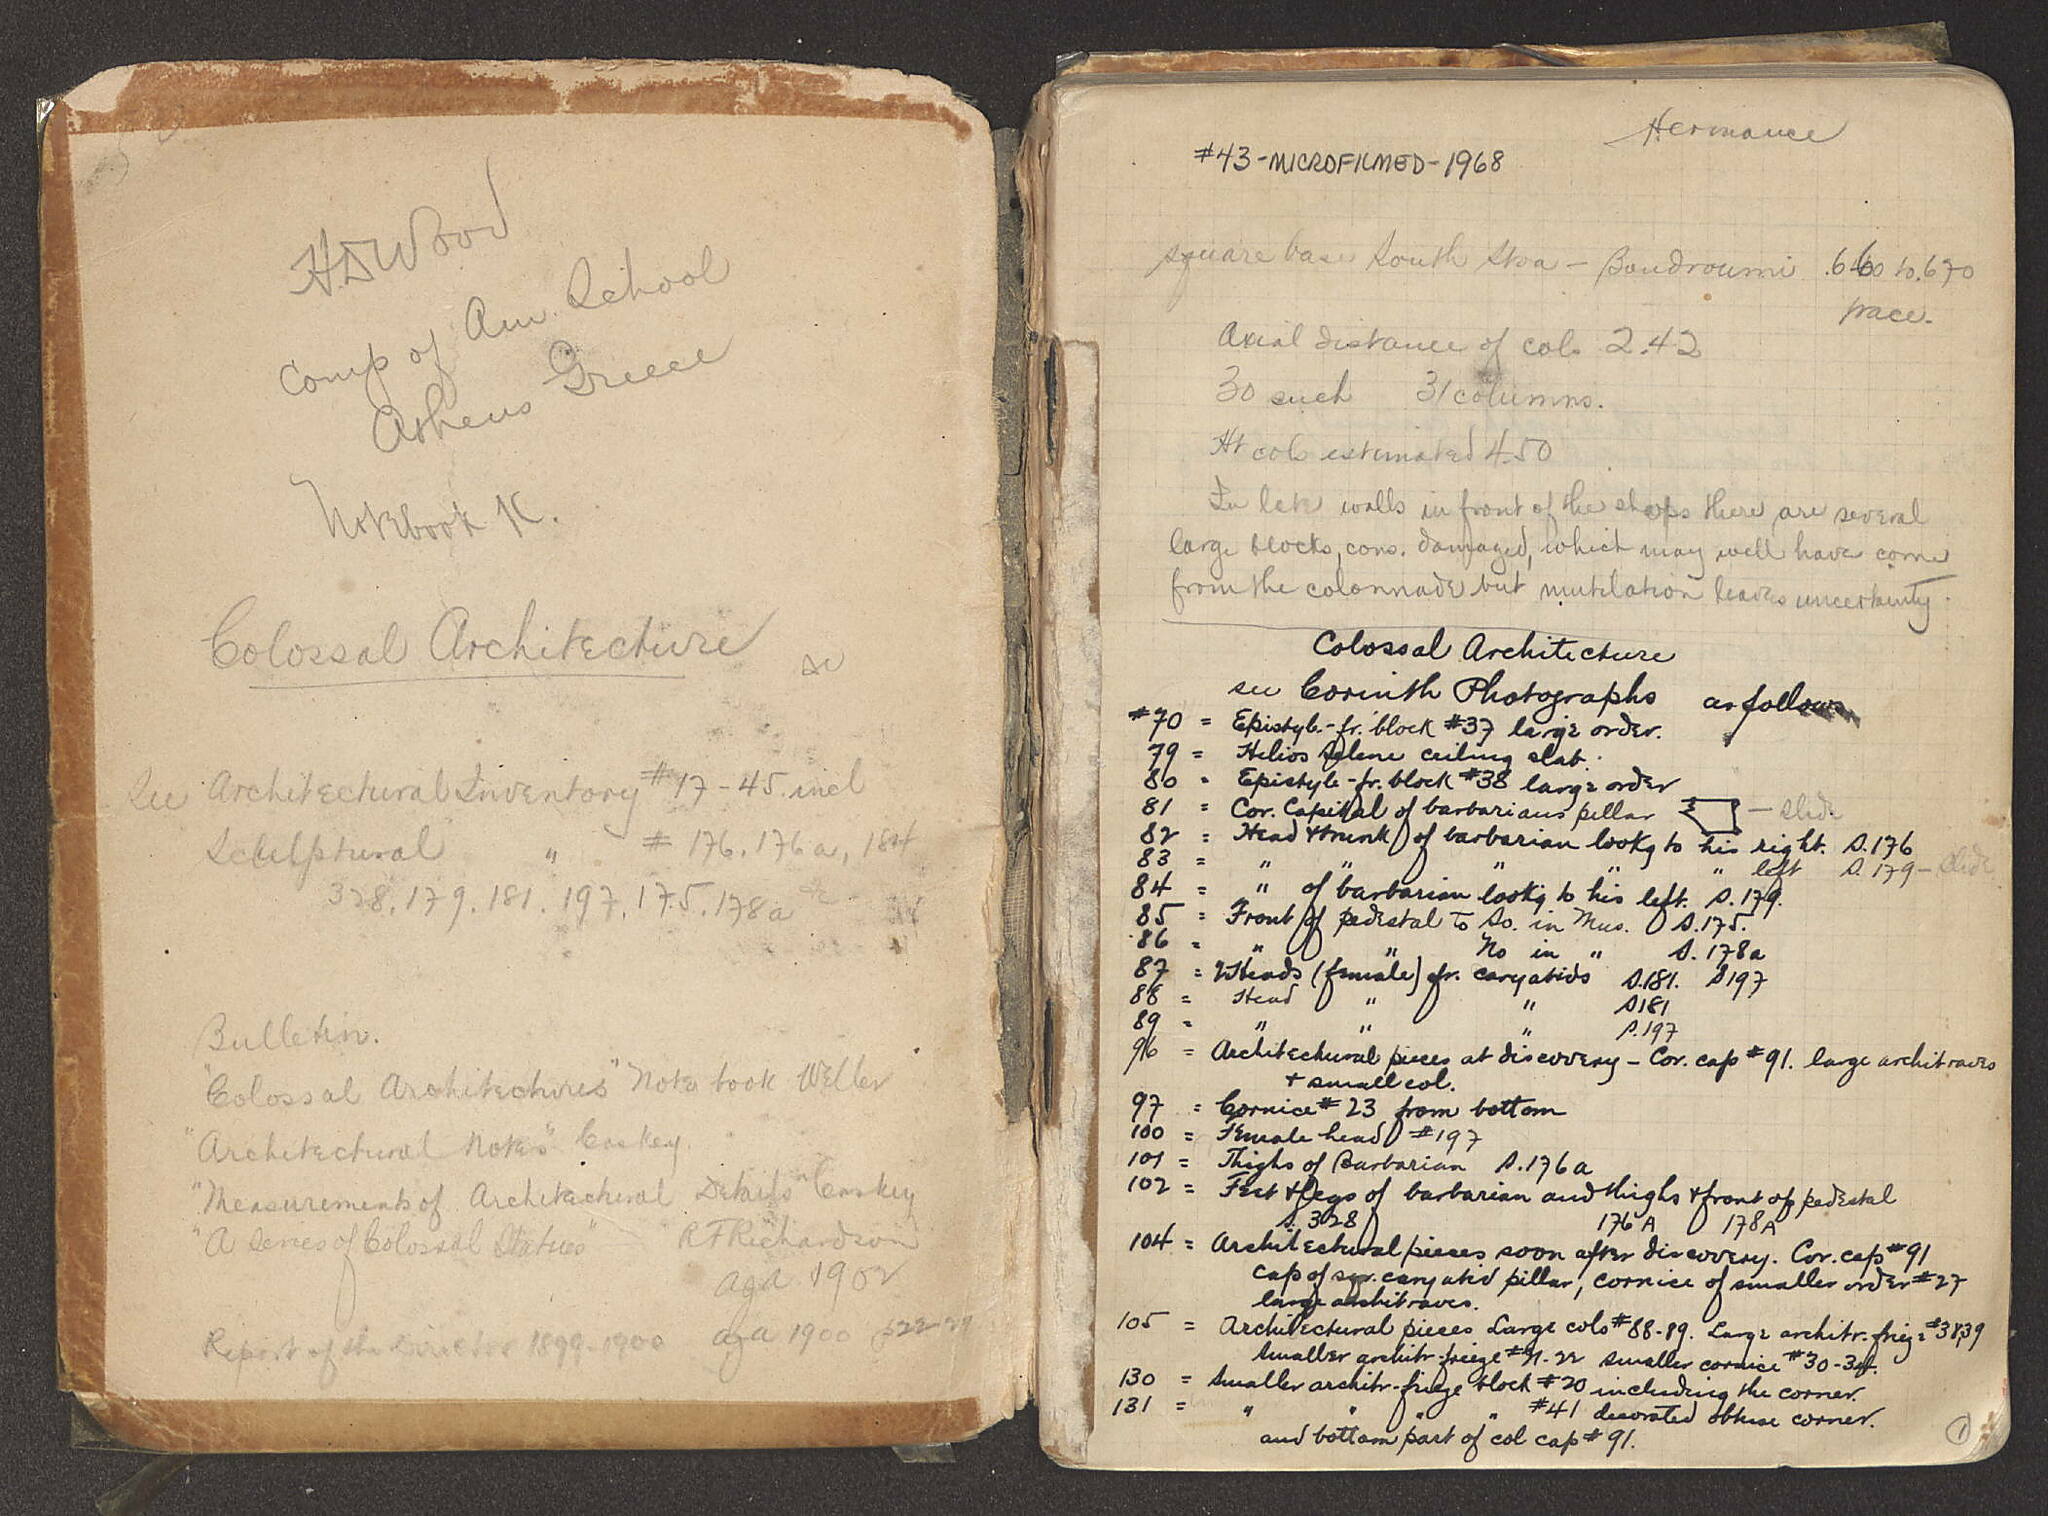 HDWood
Comp of Am. School
Athens Greece
Notebook K.
Colossal Architecture
See Architectural Inventory #17-45 incl
Sculptural " # 176. 176a, 184
328. 179. 181. 197. 175. 178a
Bulletin.
"Colossal Architectures" Note book Weller
"Architectural Notes" Caskey.
"Measurements of Architectural Details" Caskey
"A series of Colossal Statues" R F Richardson
aja 1902
Report of the Director 1899-1900 aja 1900 p22-27
Hermance
#43-MICROFILMED-1968
square base South Stoa - Boudroumi .660 to .670
Axial distance of cols 2.42
30 such 31 columns.
Ht cols estimated 4.50
In late walls in front of the shops there are several
large blocks, cons. damaged, which may well have come
from the colonnade but mutilation leaves uncertainty.
Colossal Architecture
see Corinth Photographs as follows
#70 = Epistyle-fr. block #37 large order.
79 = Helios Selene ceiling slab.
80 = Epistyle-fr. block #38 large order
81 = Cor. Capital of barbarians pillar - slide
82 = Head & trunk of barbarian lookg to his right. S.176
83 = " " " " " left S.179 - slide
84 = " of barbarian lookg to his left. S.179.
85 = Front of pedestal to So. in Mus. S.175.
86 = " " No in " S.178a
87 = 2 Heads (female) fr. caryatids S.181. S197
88 = Head " " S181
89 = " " " S.197
96 = Architectural pieces at discovery - Cor. cap #91. large architraves
+ small col.
97 = Cornice #23 from bottom
100 = Female head #197
101 = Thighs of Barbarian S.176a
102 = Feet & legs of barbarian and thighs & front of pedestal
S.328 176A 178A
104 = Architectural pieces soon after discovery. Cor. cap #91
cap of sqr. caryatid pillar, cornice of smaller order #27
large architraves.
105 = Architectural pieces Large cols #88-89. Large architr.-frieze #38,39
smaller architr-frieze #21-22 smaller cornice #30-34.
130 = Smaller architr-frieze block #20 including the corner.
131 = " " " " #41 decorated obtuse corner.
and bottom part of col cap #91.
1